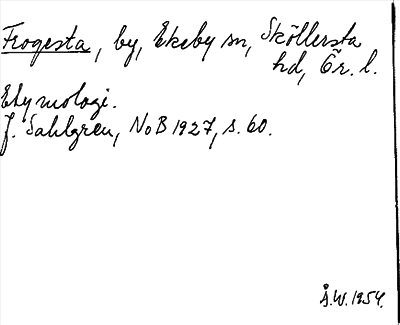 Frogesta, by, Ekeby sn, Sköllersta
hd, Ör. l.
Etymologi.
J. Sahlgren, NoB 1927, s. 60.
Å.W. 1954.